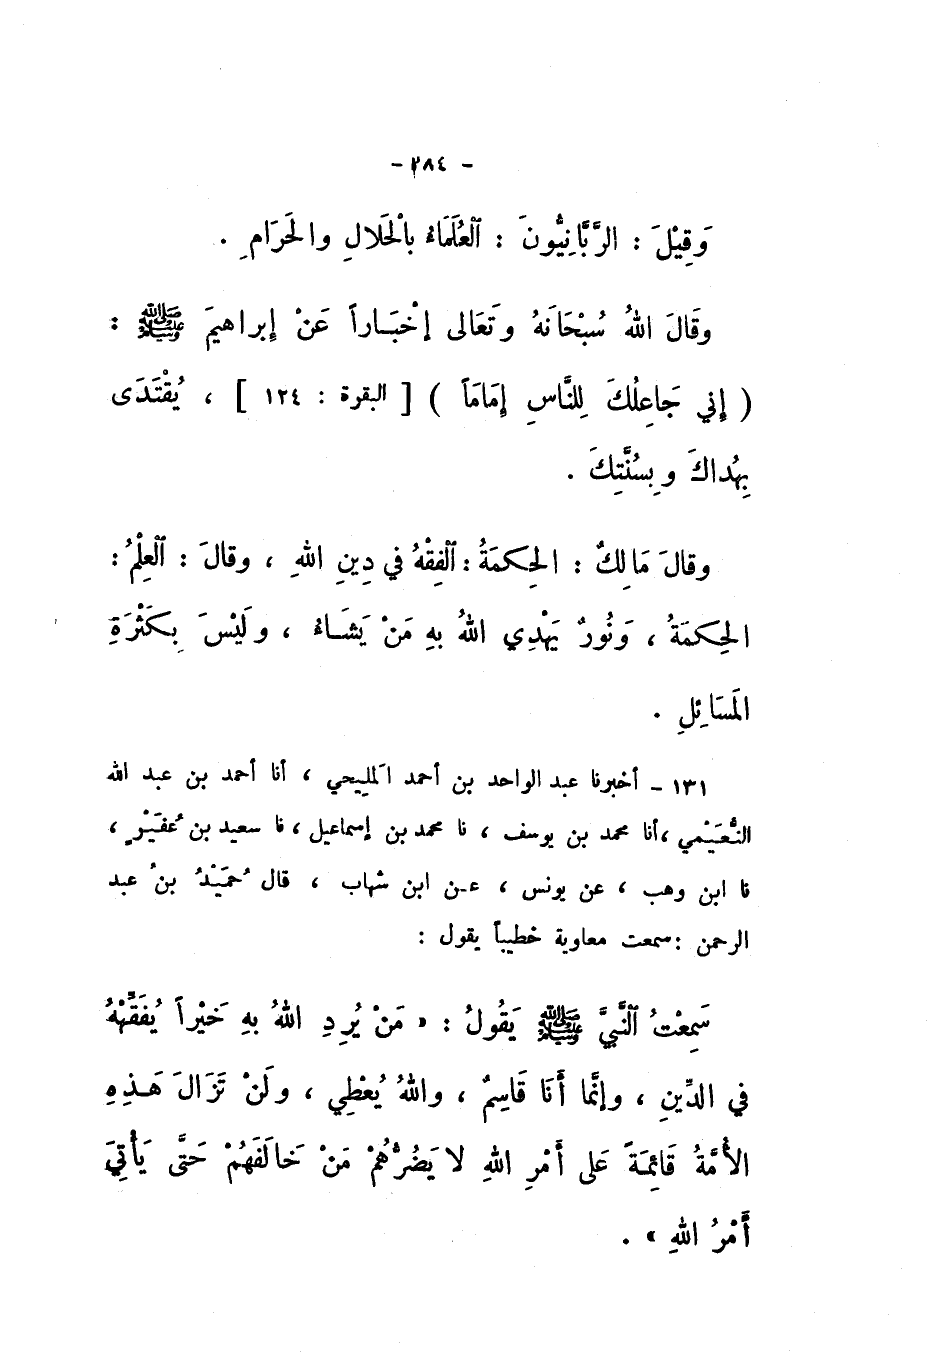 - ٢٨٤ -
وَقِيْلَ : الرَّبَّانِيُّونَ : اَلْعُلَمَاءُ بِالْحَلالِ والحَرَامِ .
وقَالَ اللهُ سُبْحَانَهُ وتَعَالى إخْبَاراً عَنْ إبراهيمَ ﷺ :
( إنِّي جَاعِلُكَ لِلنَّاسِ إمَامَاً ) [ البقرة : ١٢٤ ] ، يُقْتَدَى
بِهُداكَ وبِسُنَّتِكَ .
وقالَ مَالِكٌ : الحِكمَةُ : اَلْفِقْهُ في دِينِ اللهِ ، وقالَ : اَلْعِلْمُ :
الحِكمَةُ ، وَنُورٌ يَهْدِي اللهُ بهِ مَنْ يَشَاءُ ، ولَيْسَ بِكَثْرَةِ
المَسَائِلِ .
١٣١ - أخبرنا عبد الواحد بن أحمد المَلِيحي ، أنا أحمد بن عبد الله
النُّعَيْمي ، أنا محمد بن يوسف ، نا محمد بن إسماعيل ، نا سعيد بن عُفَيْرٍ ،
نا ابن وهب ، عن يونس ، عن ابن شهاب ، قال حُمَيْدُ بنُ عبد
الرحمن : سمعت معاوية خطيباً يقول :
سَمِعْتُ اَلنَّبِيَّ ﷺ يَقُولُ : « مَنْ يُرِدِ اللهُ بهِ خَيْراً يُفَقِّهْهُ
في الدِّينِ ، وإنَّمَا أَنَا قَاسِمٌ ، واللهُ يُعْطِي ، ولَنْ تَزَالَ هَذِهِ
الأُمَّةُ قَائِمَةً عَلى أَمْرِ اللهِ لا يَضُرُّهُمْ مَنْ خَالَفَهُمْ حَتَّى يَأْتِيَ
أَمْرُ اللهِ » .